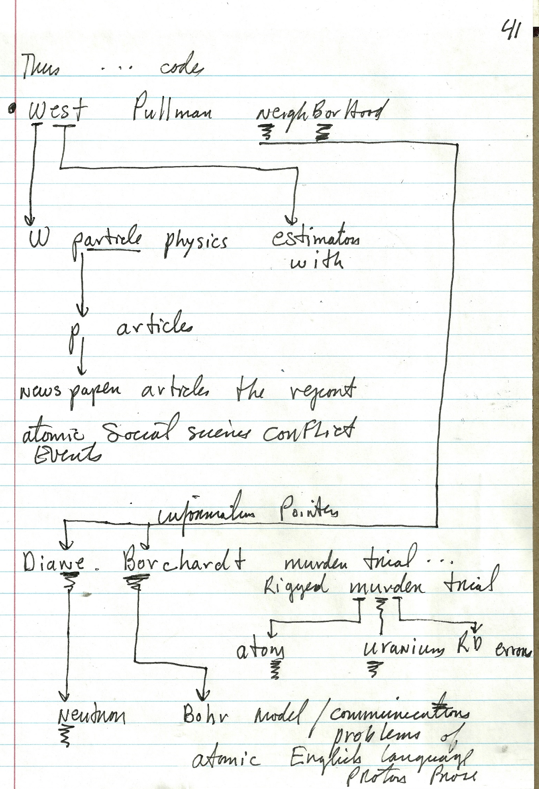 41
Thus ... codes
West Pullman NeighBorHood
W particle physics estimators
with
p articles
Newspaper articles the report
atomic Social science Conflict
Events
information Pointers
Diane. Borchardt murder trial ...
Rigged murder trial
atom uranium RD errors
Neutron Bohr model / communications
problems of
atomic English language
Proton Prose